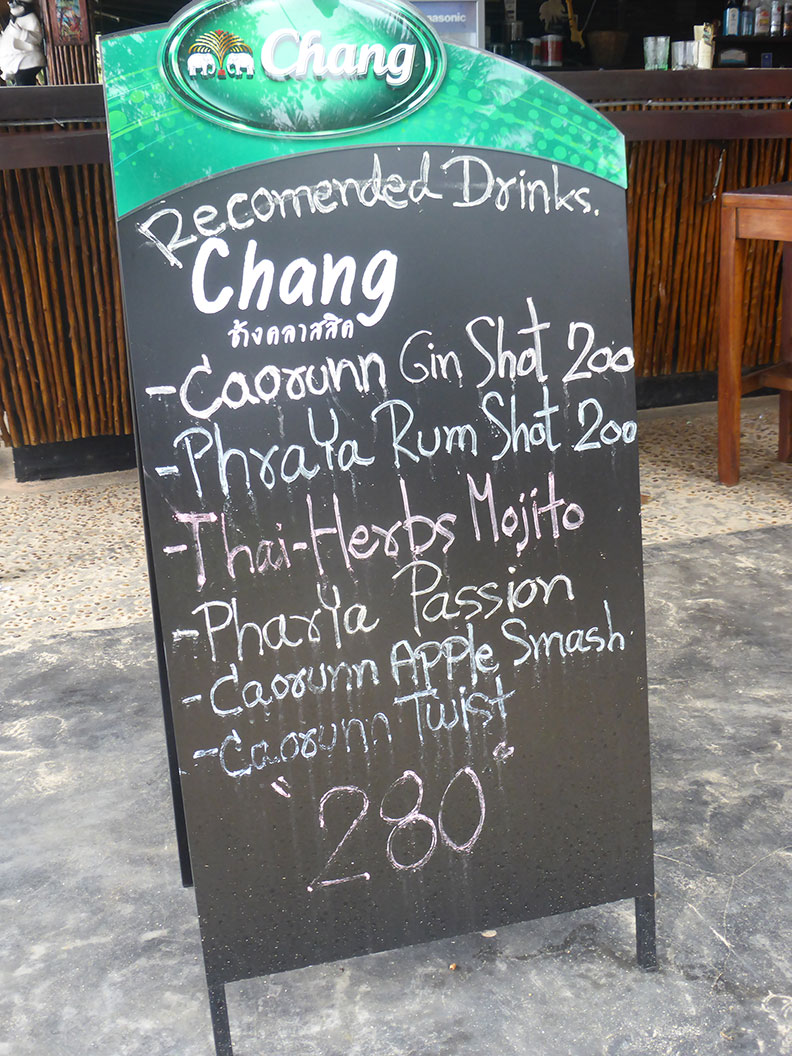 Panasonic
Chang
Recomended Drinks.
Chang
ช้างคลาสสิค
-Caorunn Gin Shot 200
-PhraYa Rum Shot 200
-Thai-Herbs Mojito
-PharYa Passion
-Caorunn APPle Smash.
-Caorunn Twist
"280"